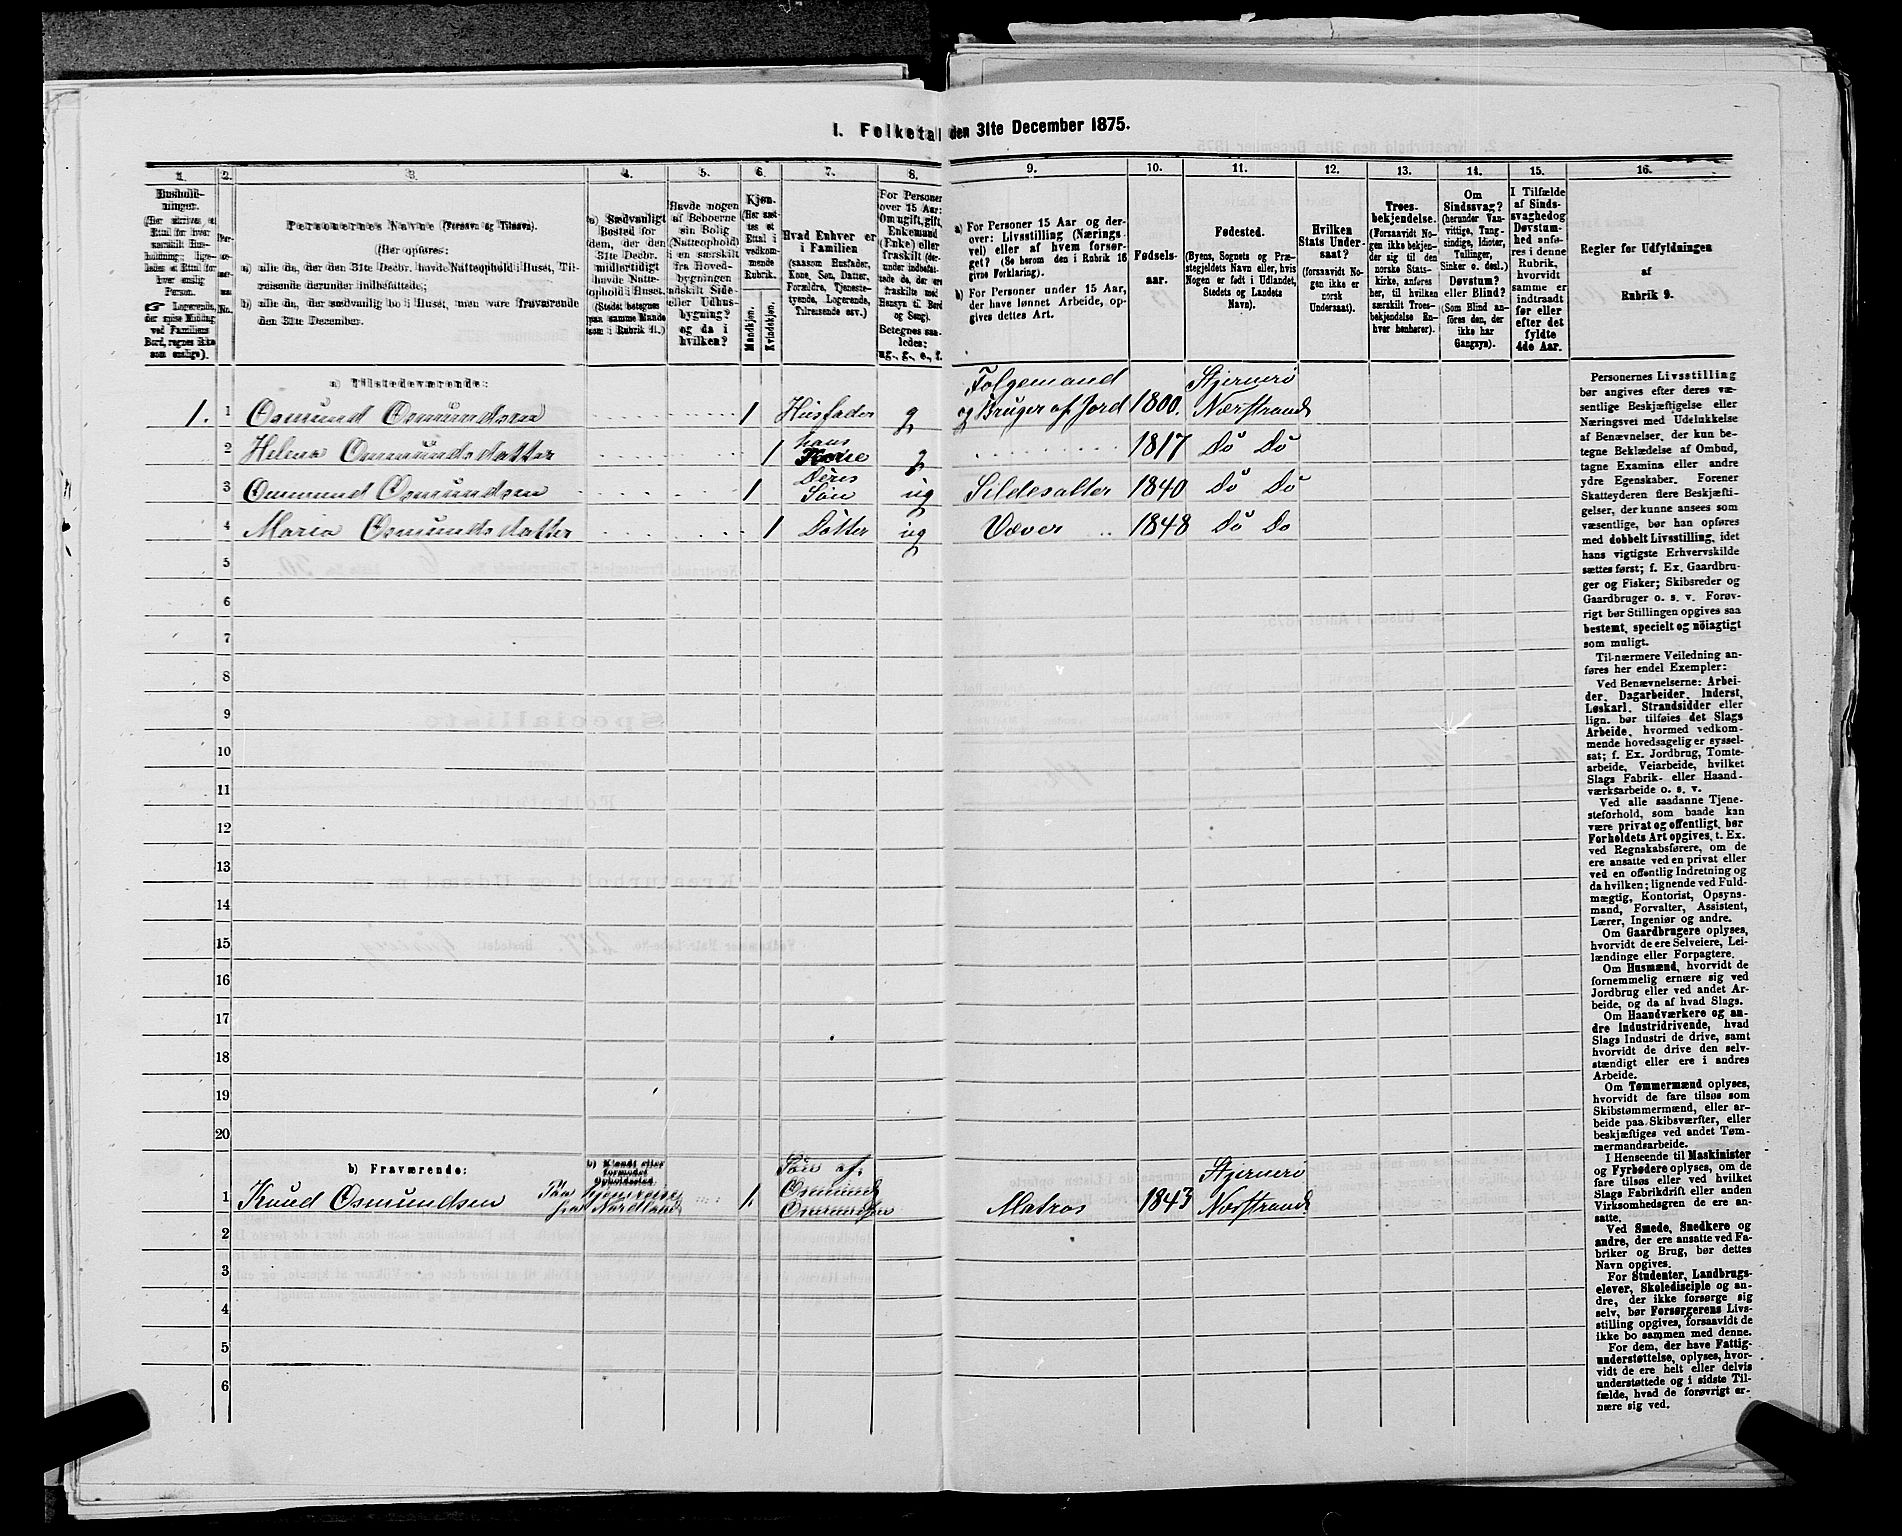 I. Folketal den 31te December 1875.
1. 2. 3. 4. 5. 6. 7. 8. 9. 10. 11. 12. 13. 14. 15. 16.
Personernes Navne (Fornavn og Tilnavn).
(Her opføres:
a) alle de, der den 31te Decbr. havde Natteophold i Huset, Tilreisende derunder indbefattede;
b) alle de, der sædvanlig bo i Huset, men vare fraværende den 31te December.
Kjøn.
Mandkjøn.
Kvindekjøn.
Hvad Enhver er i Familien
(saasom Husfader, Kone, Søn, Datter, Forældre, Tjenestetyende, Logerende, Tilreisende osv.)
a) For Personer 15 Aar og derover: Livsstilling (Næringsvei) eller af hvem forsørget? (Se herom den i Rubrik 16 givne Forklaring).
b) For Personer under 15 Aar, der have lønnet Arbeide, opgives dettes Art.
Fødselsaar.
Fødested.
(Byens, Sognets og Præstegjeldets Navn eller, hvis Nogen er født i Udlandet, Stedets og Landets Navn).
Hvilken Stats Undersaat?
(forsaavidt Nogen ikke er norsk Undersaat).
Troesbekjendelse.
(Forsaavidt Nogen ikke bekjender sig til den norske Statskirke, anføres her, til hvilken særskilt Troesbekjendelse Enhver henhører).
Om Sindssvag?
(herunder Vanvittige, Tungsindige, Idioter, Tullinger, Sinker o. desl.)
Døvstum? eller Blind?
(Som Blind anføres den, der ikke har Gangsyn).
I Tilfælde af Sindssvaghed og Døvstumhed anføres i denne Rubrik, hvorvidt samme er indtraadt før eller efter det fyldte 4de Aar.
Regler for Udfyldningen
af
Rubrik 9.
a) Tilstedeværende:
1. 1 Osmund Osmundsen 1 Husfader g Følgemand og Bruger af Jord 1800. Stjernerö Nærstrand
2 Helena Osmundsdatter 1 hans Kone g 1817 Do Do
3 Osmund Osmundsen 1 Deres Sön ug Sildesalter 1840 Do Do
4 Maria Osmundsdatter 1 Datter ug Væver 1848 Do Do
5
6
7
8
9
10
11
12
13
14
15
16
17
18
19
20
b) Fraværende:
b) Kjendt eller formodet Opholdssted.
1 Knud Osmundsen Paa Hjemreise fra Nordland 1. Sön af Osmund Osmundsen Matros 1843 Stjernerö Nærstrand
2
3
4
5
6
Personernes Livsstilling
bør angives efter deres væ-
sentlige Beskjæftigelse eller
Næringsvei med Udelukkelse
af Benævnelser, der kun be-
tegne Beklædelse af Ombud,
tagne Examina eller andre
ydre Egenskaber. Forener
Skatteyderen flere Beskjæfti-
gelser, der kunne ansees som
væsentlige, bør han opføres
med dobbelt Livsstilling, idet
hans vigtigste Erhvervskilde
sættes først; f. Ex. Gaardbru-
ger og Fisker; Skibsreder og
Gaardbruger o. s. v. Forøv-
rigt bør Stillingen opgives saa
bestemt, specielt og nöiagtigt
som muligt.
Til nærmere Veiledning an-
føres her endel Exempler:
Ved Benævnelserne: Arbei-
der, Dagarbeider, Inderst,
Løskarl, Strandsidder eller
lign. bør tilføies det Slags
Arbeide, hvormed vedkom-
mende hovedsagelig er syssel-
sat; f. Ex. Jordbrug, Tomte-
arbeide, Veiarbeide, hvilket
Slags Fabrik- eller Haand-
værksarbeide o. s. v.
Ved alle saadanne Tjene-
steforhold, som baade kan
være privat og offentligt, bør
Forholdets Art opgives, t. Ex.
ved Regnskabsførere, om de
ere ansatte ved en privat eller
ved en offentlig Indretning og
da hvilken; lignende ved Fuld-
mægtig, Kontorist, Opsyns-
mand, Forvalter, Assistent,
Lærer, Ingeniør og andre.
Om Gaardbrugere oplyses,
hvorvidt de ere Selveiere, Lei-
lændinge eller Forpagtere.
Om Husmænd, hvorvidt de
fornemmelig ernære sig ved
Jordbrug eller ved andet Ar-
beide, og da af hvad Slags.
Om Haandværkere og an-
dre Industridrivende, hvad
Slags Industri de drive, samt
hvorvidt de drive den selv-
stændigt eller ere i andres
Arbeide.
Om Tømmermænd oplyses,
hvorvidt de fare tilsøs som
Skibstømmermænd, eller ar-
beide paa Skibsværfter, eller
beskjæftiges ved andet Tøm-
mermandsarbeide.
I Henseende til Maskinister
og Fyrbødere oplyses, om de
fare tilsøs eller ved hvilket
Slags Fabrikdrift eller anden
Virksomhedsgren de ere an-
satte.
Ved Smede, Snedkere og
andre, der ere ansatte ved Fa-
briker og Brug, bør dettes
Navn opgives.
For Studenter, Landbrugs-
elever, Skoledisciple og an-
dre, der ikke forsørge sig
selv, bør Forsørgerens Livs-
stilling opgives, forsaavidt de
ikke bo sammen med denne.
For dem, der have Fattig-
understøttelse, oplyses, hvor-
vidt de ere helt eller delvis
understøttede og i sidste Til-
fælde, hvad de forøvrigt er-
nære sig ved.